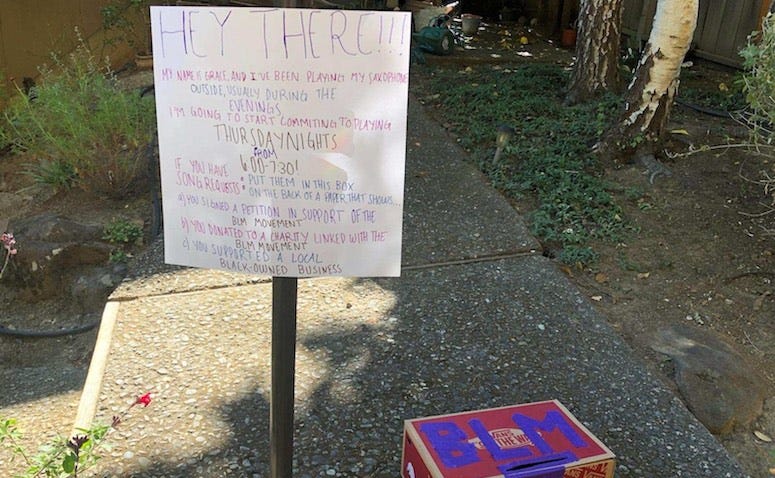 HEY THERE!!!
MY NAME IS GRACE, AND I'VE BEEN PLAYING MY SAXOPHONE
OUTSIDE, USUALLY DURING THE
EVENINGS
I'M GOING TO START COMMITING TO PLAYING
THURSDAY NIGHTS
FROM
6:00-7:30!
IF YOU HAVE
SONG REQUESTS: PUT THEM IN THIS BOX
ON THE BACK OF A PAPER THAT SHOWS...
a) YOU SIGNED A PETITION IN SUPPORT OF THE
BLM MOVEMENT
b) YOU DONATED TO A CHARITY LINKED WITH THE
BLM MOVEMENT
c) YOU SUPPORTED A LOCAL
BLACK-OWNED BUSINESS
BLM
VANS
"OFF THE WALL"